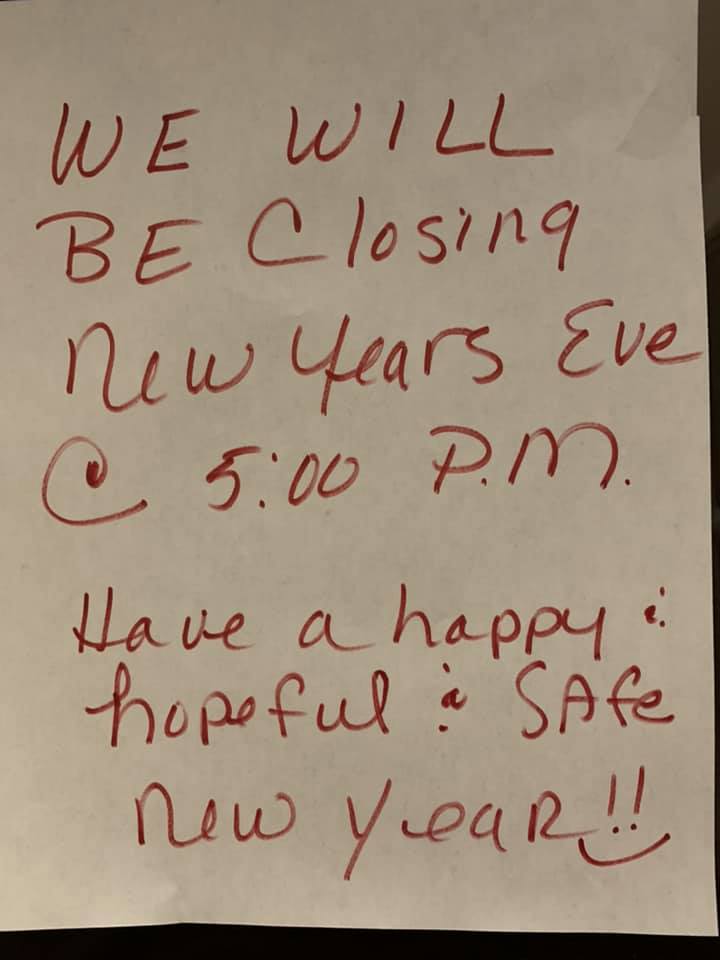 WE WILL
BE Closing
New Years Eve
@ 5:00 P.M.
Have a happy &
hopeful & SAfe
New YeaR!!